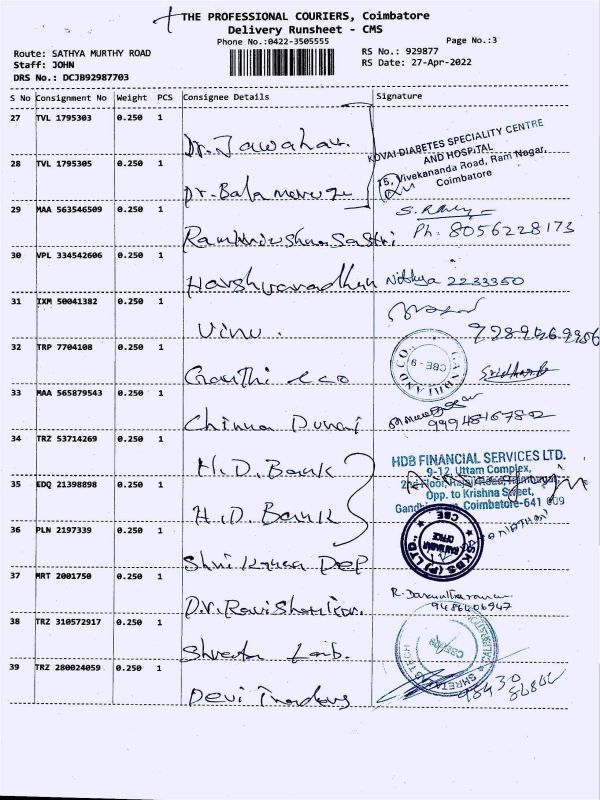 THE PROFESSIONAL COURIERS, Coimbatore
Delivery Runsheet - CMS
Phone No.:0422-3505555
Page No.:3
Route: SATHYA MURTHY ROAD
RS No.: 929877
Staff: JOHN
RS Date: 27-Apr-2022
DRS No.: DCJB92987703
S No Consignment No Weight PCS Consignee Details Signature
27 TVL 1795303 0.250 1
Dr. Jawahar.
KOVAI DIABETES SPECIALITY CENTRE
AND HOSPITAL
15, Vivekananda Road, Ram Nagar,
Coimbatore
28 TVL 1795305 0.250 1
Dr. Bala
29 MAA 563546509 0.250 1
Sastri
Ph: 8056228173
30 VPL 334542606 0.250 1
Harshvaradhan Nithya 2233350
31 IXM 50041382 0.250 1
Vinu.
32 TRP 7704108 0.250 1
Gandhi & co
GANDHI AND CO
CBE-9
Sridhar
33 MAA 565879543 0.250 1
Chinna Durai
34 TRZ 53714269 0.250 1
H.D. Bank
HDB FINANCIAL SERVICES LTD.
9-12, Uttam Complex,
Opp. to Krishna Street,
Coimbatore-641 009
35 EDQ 21398898 0.250 1
H.D. Bank
36 PLN 2197339 0.250 1
Dep
SKBS (P) LTD
CBE
OFFICE
37 MRT 2001750 0.250 1
D.r. Ravi Shankar.
9486406947
38 TRZ 310572917 0.250 1
Lab.
39 TRZ 280024059 0.250 1
Devi Traders